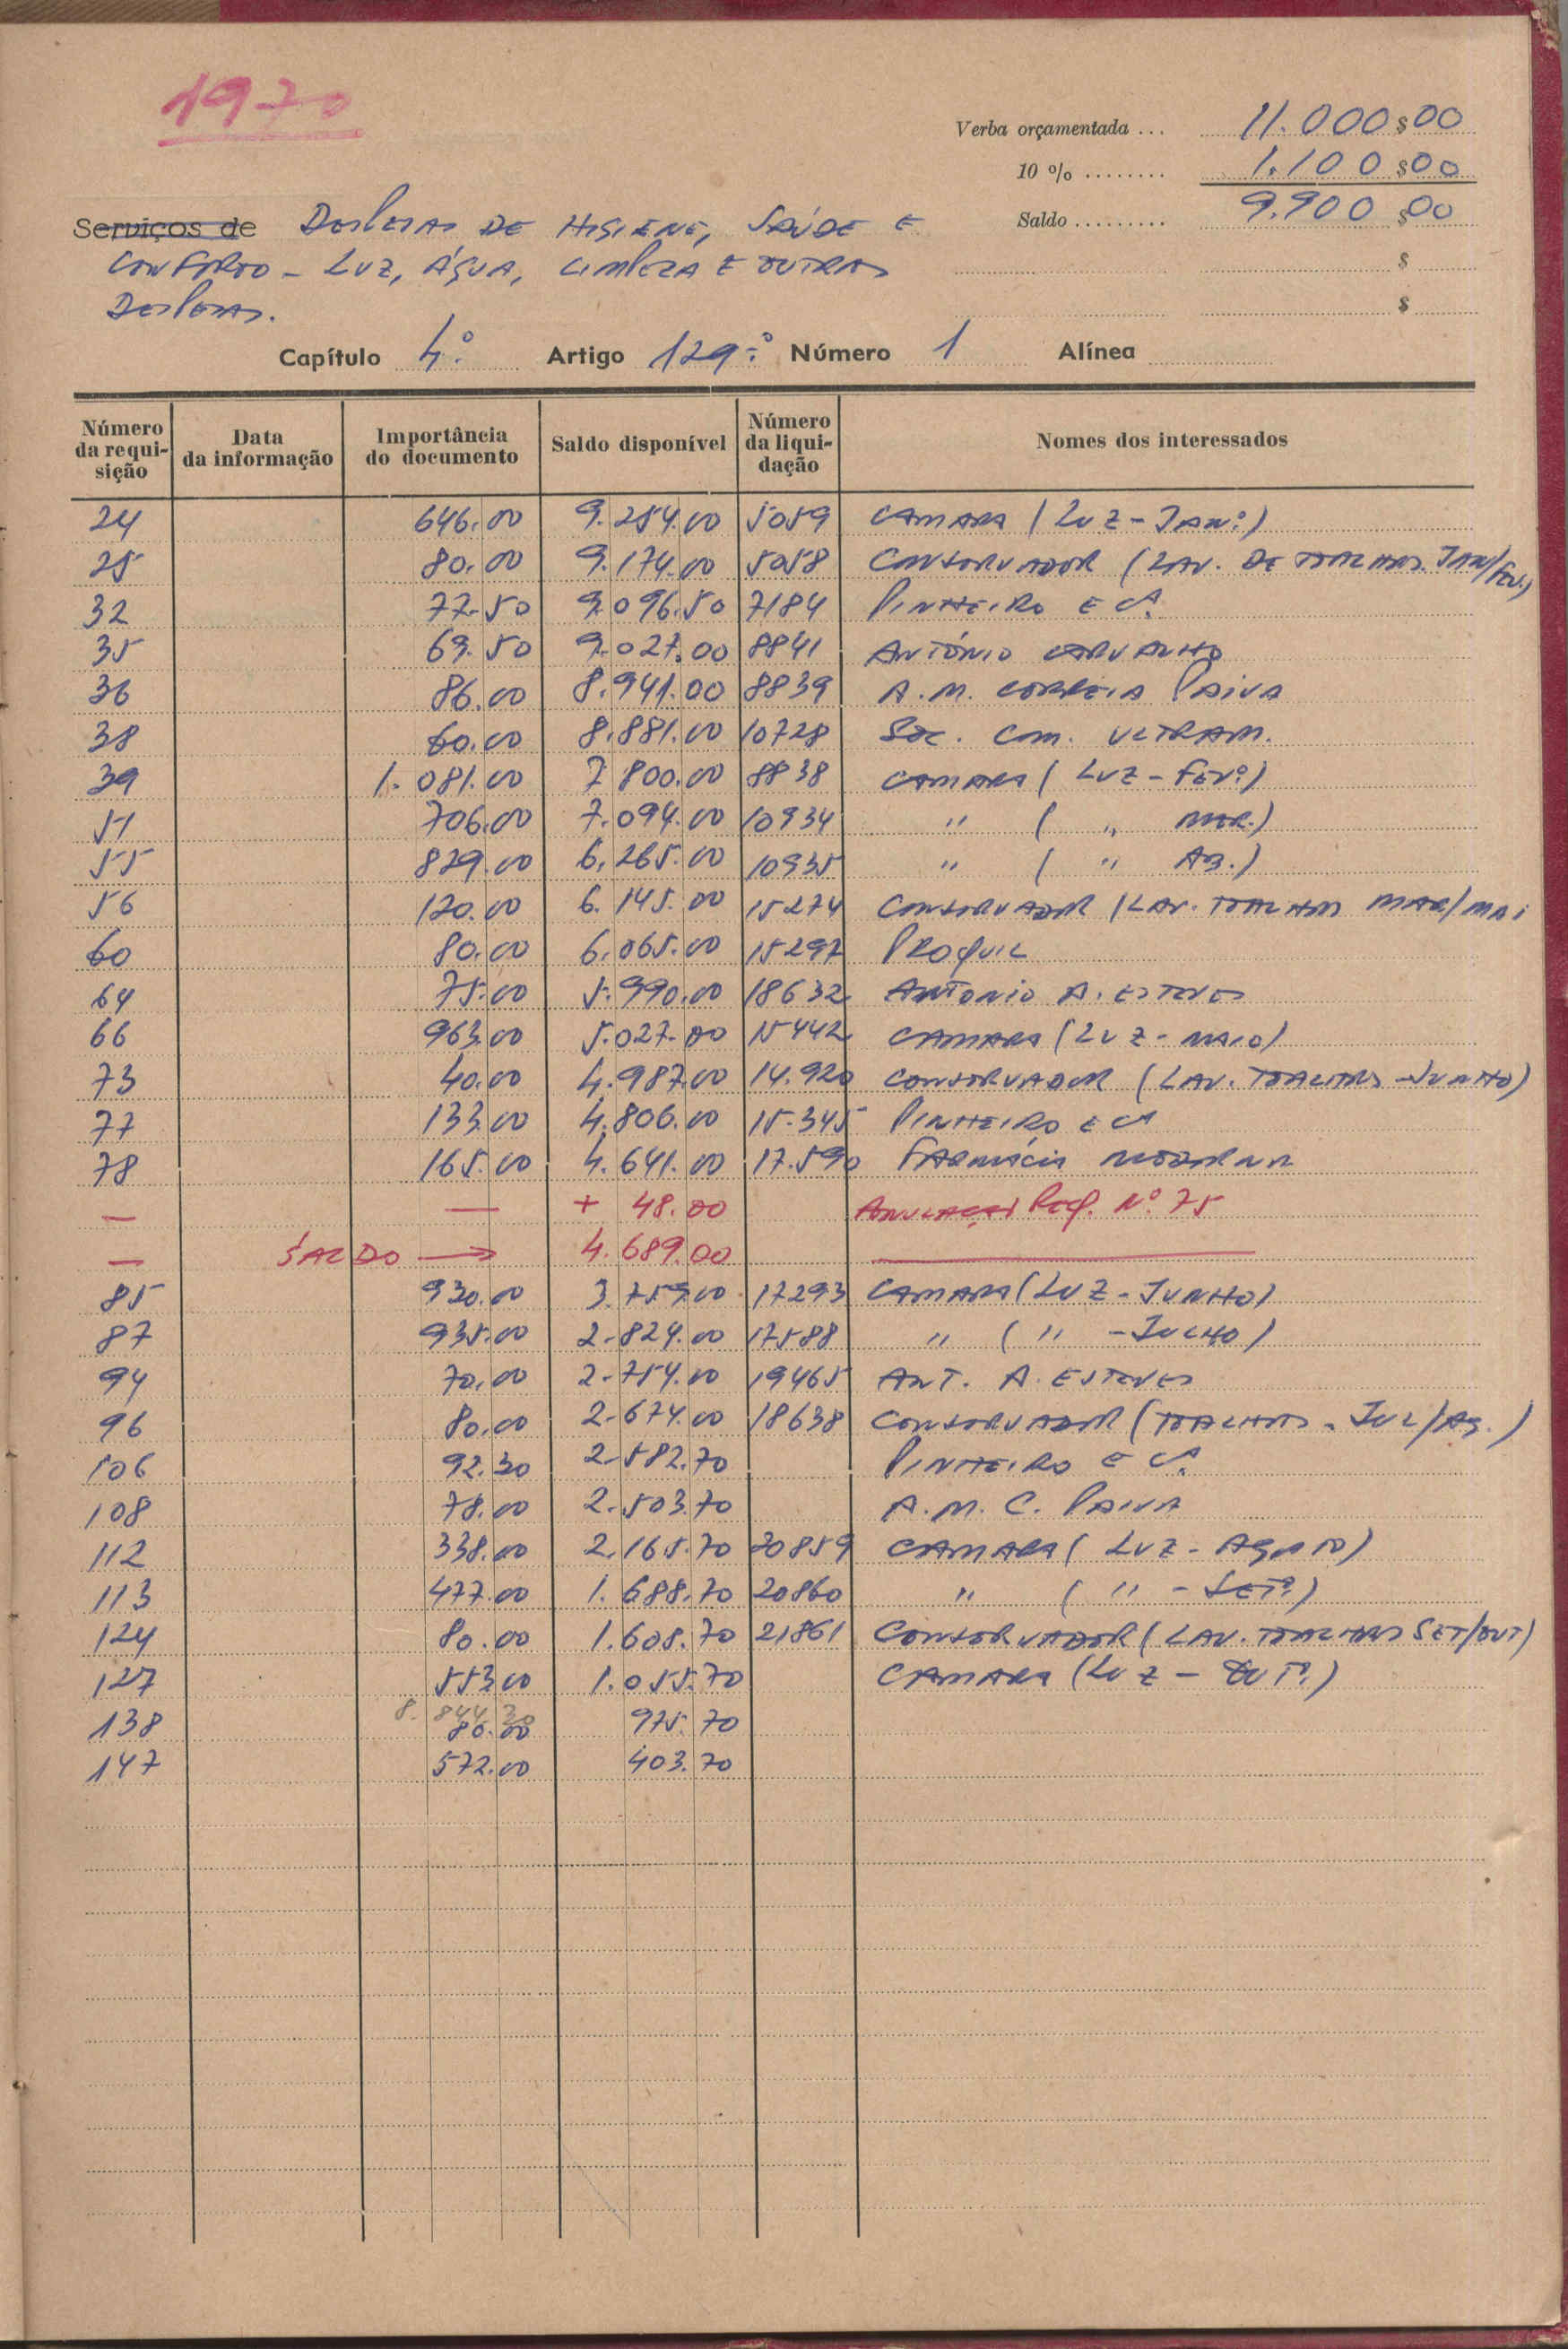 1970
Verba orçamentada ... 11.000$00
10 % ........ 1.100$00
Saldo ......... 9.900$00
$
$
Serviços de Despesas DE HIGIENE, SAÚDE E
CONFORTO - LUZ, ÁGUA, LIMPEZA E OUTRAS
DESPESAS.
Capítulo 4.º Artigo 129.º Número 1 Alínea
Número da requisição Data da informação Importância do documento Saldo disponível Número da liquidação Nomes dos interessados
24 646.00 9.254.00 5059 CAMARA (LUZ - JANº.)
25 80.00 9.174.00 5058 CONSERVADOR (LAV. DE TOALHAS. JAN/FEV.)
32 77.50 9.096.50 7184 PINHEIRO E Cª.
35 69.50 9.027.00 8841 ANTÓNIO CARVALHO
36 86.00 8.941.00 8839 A. M. CORREIA PAIVA
38 60.00 8.881.00 10728 SOC. COM. ULTRAM.
39 1.081.00 7 800.00 8838 CAMARA (LUZ - FEVº.)
51 706.00 7.094.00 10934 " ( " MAR.)
55 829.00 6.265.00 10935 " ( " AB.)
56 120.00 6.145.00 15274 CONSERVADOR (LAV. TOALHAS MAR/MAI
60 80.00 6.065.00 15297 PROQUIL
64 75.00 5.990.00 18632 ANTONIO A. ESTEVES
66 963.00 5.027.00 15442 CAMARA (LUZ - MAIO)
73 40.00 4.987.00 14.920 CONSERVADOR (LAV. TOALHAS - JUNHO)
77 133.00 4.806.00 15.345 PINHEIRO E Cª
78 165.00 4.641.00 17.590 FARMÁCIA MODERNA
— — + 48.00 ANULAÇÃO Req. Nº 75
— SALDO → 4.689.00
85 930.00 3.759.00 17293 CAMARA (LUZ - JUNHO)
87 935.00 2.824.00 17588 " ( " - JULHO)
94 70.00 2.754.00 19465 ANT. A. ESTEVES
96 80.00 2.674.00 18638 CONSERVADOR (TOALHAS - JUL/AG.)
106 92.30 2.582.70 PINHEIRO E Cª.
108 78.00 2.503.70 A. M. C. PAIVA
112 338.00 2.165.70 20859 CAMARA (LUZ - AGOSTO)
113 477.00 1.688.70 20860 " ( " - SETº.)
124 80.00 1.608.70 21861 CONSERVADOR (LAV. TOALHAS SET/OUT)
127 553.00 1.055.70 CAMARA (LUZ - OUTº.)
8.844.30
138 80.00 975.70
147 572.00 403.70